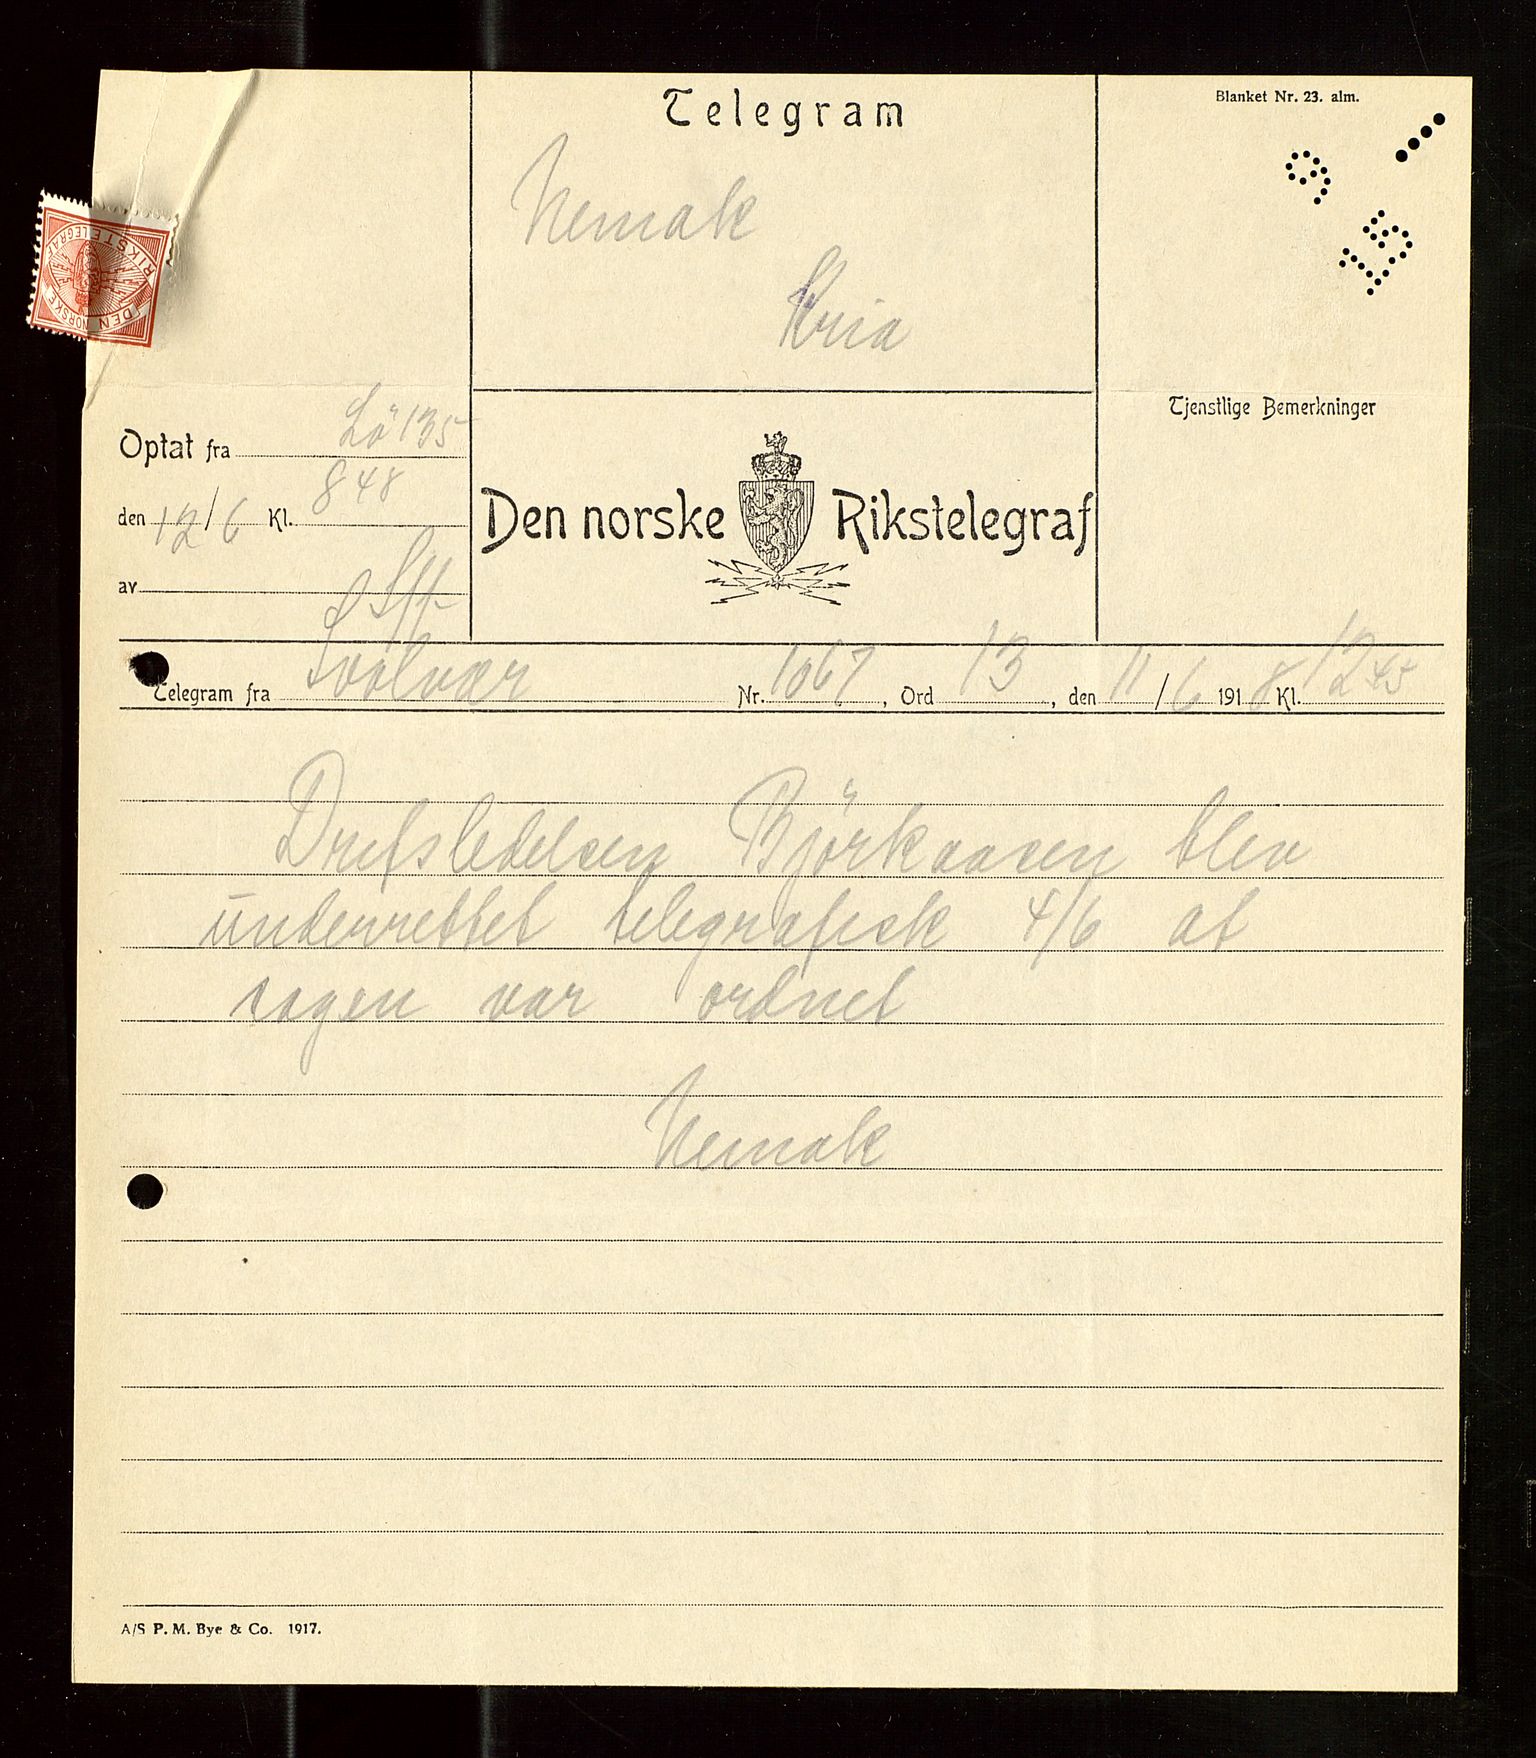 Telegram
Blanket Nr. 23. alm.
9 15
Nemak
Kria
DEN NORSKE RIKSTELEGRAF
Tjenstlige Bemerkninger
Optat fra Lö 135
den 12/6 Kl. 848
av
Den norske Rikstelegraf
Telegram fra Svolvær Nr. 1067, Ord 13, den 11/6 1918 Kl. 1245
Drefsledelsen Björkaasen blev
underrettet telegrafisk 4/6 at
sagen var ordnet
Nemak
A/S P. M. Bye & Co. 1917.